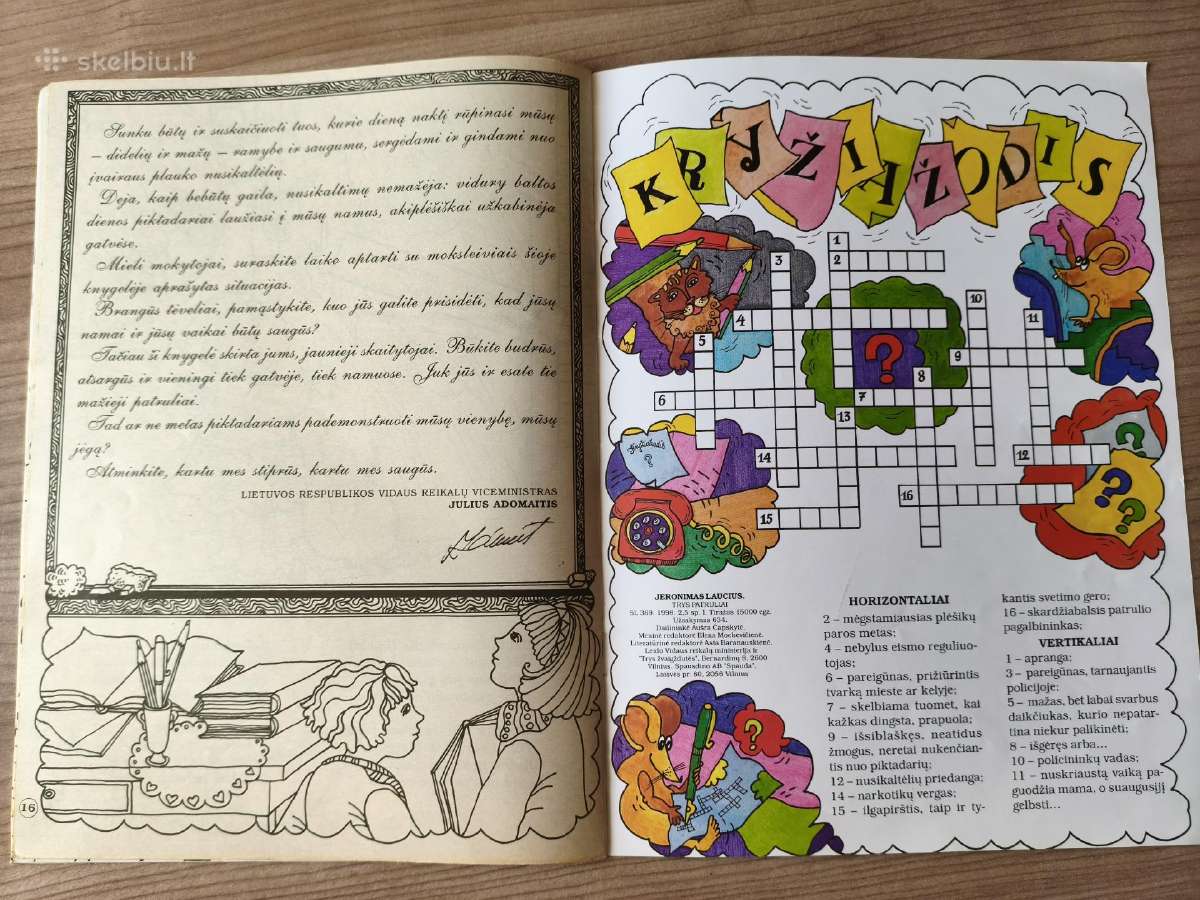 skelbiu.lt
Sunku būtų ir suskaičiuoti tuos, kurie dieną naktį rūpinasi mūsų
– didelių ir mažų – ramybe ir saugumu, sergėdami ir gindami nuo
įvairaus plauko nusikaltėlių.
Deja, kaip bebūtų gaila, nusikaltimų nemažėja: vidury baltos
dienos piktadariai laužiasi į mūsų namus, akiplėšiškai užkabinėja
gatvėse.
Mieli mokytojai, suraskite laiko aptarti su moksleiviais šioje
knygelėje aprašytas situacijas.
Brangūs tėveliai, pamąstykite, kuo jūs galite prisidėti, kad jūsų
namai ir jūsų vaikai būtų saugūs?
Tačiau ši knygelė skirta jums, jaunieji skaitytojai. Būkite budrūs,
atsargūs ir vieningi tiek gatvėje, tiek namuose. Juk jūs ir esate tie
mažieji patruliai.
Tad ar ne metas piktadariams pademonstruoti mūsų vienybę, mūsų
jėgą?
Atminkite, kartu mes stiprūs, kartu mes saugūs.
LIETUVOS RESPUBLIKOS VIDAUS REIKALŲ VICEMINISTRAS
JULIUS ADOMAITIS
16
KRYŽIAŽODIS
1
3
2
10
4
11
5
?
9
8
6
7
13
Kryžiažodis
?
?
14
12
?
?
16
15
JERONIMAS LAUCIUS.
TRYS PATRULIAI
SL 369. 1998. 2,5 sp. l. Tiražas 15000 egz.
Užsakymas 634.
Dailininkė Aušra Čapskytė.
Meninė redaktorė Elena Mockevičienė.
Literatūrinė redaktorė Asta Baranauskienė.
Leido Vidaus reikalų ministerija ir
"Trys žvaigždutės", Bernardinų 8, 2600
Vilnius. Spausdino AB "Spauda",
Laisvės pr. 60, 2056 Vilnius
?
HORIZONTALIAI
2 – mėgstamiausias plėšikų
paros metas;
4 – nebylus eismo reguliuo-
tojas;
6 – pareigūnas, prižiūrintis
tvarką mieste ar kelyje;
7 – skelbiama tuomet, kai
kažkas dingsta, prapuola;
9 – išsiblaškęs, neatidus
žmogus, neretai nukenčian-
tis nuo piktadarių;
12 – nusikaltėlių priedanga;
14 – narkotikų vergas;
15 – ilgapirštis, taip ir ty-
kantis svetimo gero;
16 – skardžiabalsis patrulio
pagalbininkas;
VERTIKALIAI
1 – apranga;
3 – pareigūnas, tarnaujantis
policijoje;
5 – mažas, bet labai svarbus
daikčiukas, kurio nepatar-
tina niekur palikinėti;
8 – išgėręs arba...
10 – policininkų vadas;
11 – nuskriaustą vaiką pa-
guodžia mama, o suaugusįjį
gelbsti...